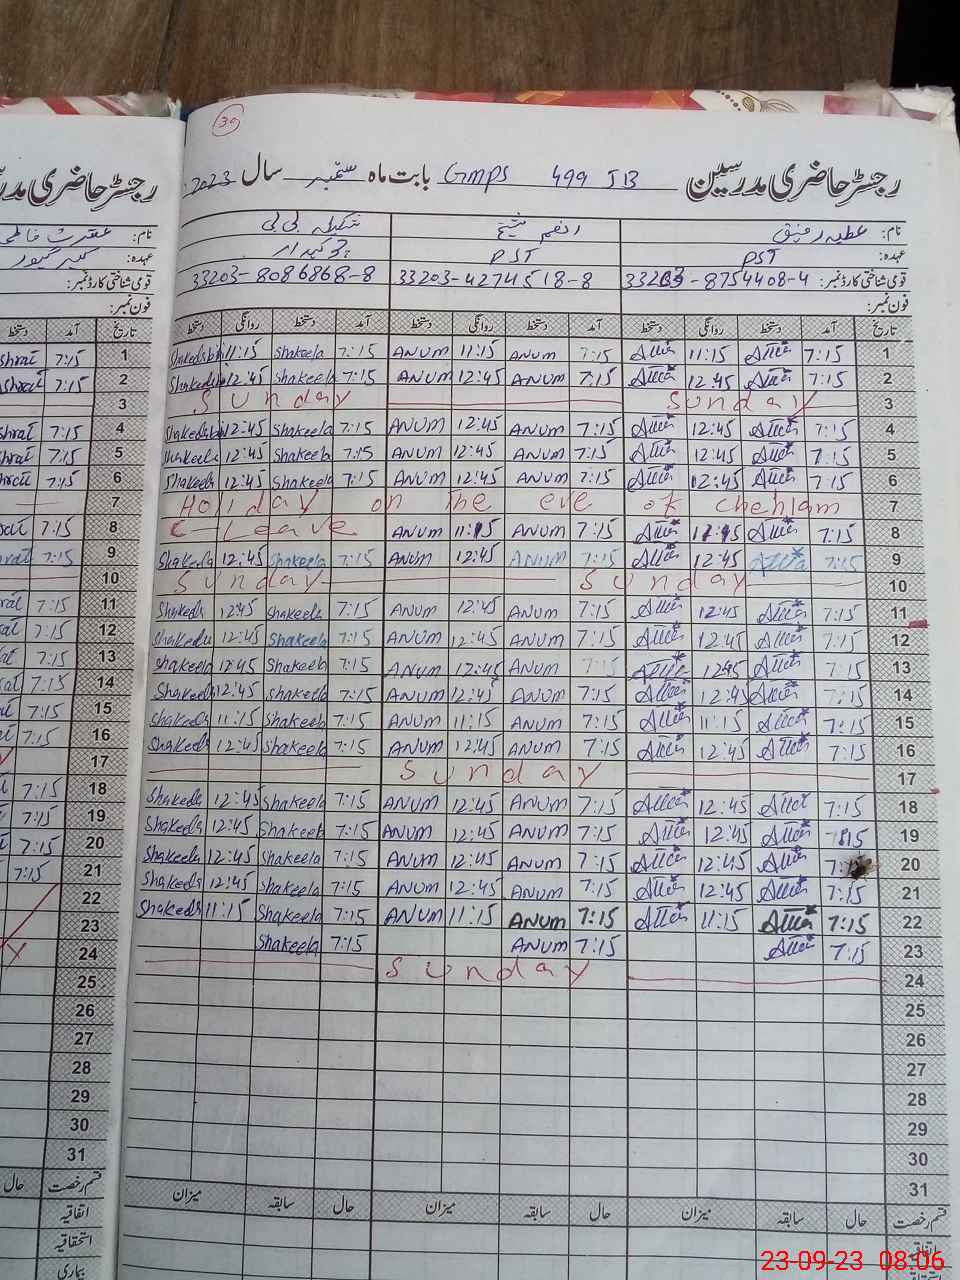 39
رجسٹر حاضری مدرسین GMPS 499 JB بابت ماہ ستمبر سال 2023
نام: عطیہ رفیق انعم شیخ شکیلہ بی بی
عہدہ: PST PST چوکیدار
قومی شناختی کارڈ نمبر: 33203-4274518-8 33203-8086868-8
فون نمبر:
تاریخ آمد دستخط روانگی دستخط آمد دستخط روانگی دستخط آمد دستخط روانگی دستخط
11:15 Shakeela 7:15 ANUM 11:15 ANUM 7:15 Attia 11:15 Attia 7:15 1
12:45 Shakeela 7:15 ANUM 12:45 ANUM 7:15 Attia 12:45 Attia 7:15 2
Sunday Sunday 3
12:45 Shakeela 7:15 ANUM 12:45 ANUM 7:15 Attia 12:45 Attia 7:15 4
Shakeela 12:45 Shakeela 7:15 ANUM 12:45 ANUM 7:15 Attia 12:45 Attia 7:15 5
Shakeela 12:45 Shakeela 7:15 ANUM 12:45 ANUM 7:15 Attia 12:45 Attia 7:15 6
Holiday on the eve of chehlam 7
C-Leave ANUM 11:15 ANUM 7:15 Attia 11:15 Attia 7:15 8
Shakeela 12:45 Shakeela 7:15 ANUM 12:45 ANUM 7:15 Attia 12:45 Attia 7:15 9
Sunday Sunday 10
Shakeela 12:45 Shakeela 7:15 ANUM 12:45 ANUM 7:15 Attia 12:45 Attia 7:15 11
Shakeela 12:45 Shakeela 7:15 ANUM 12:45 ANUM 7:15 Attia 12:45 Attia 7:15 12
Shakeela 12:45 Shakeela 7:15 ANUM 12:45 ANUM 7:15 Attia 12:45 Attia 7:15 13
Shakeela 12:45 Shakeela 7:15 ANUM 12:45 ANUM 7:15 Attia 12:45 Attia 7:15 14
Shakeela 11:15 Shakeela 7:15 ANUM 11:15 ANUM 7:15 Attia 11:15 Attia 7:15 15
Shakeela 12:45 Shakeela 7:15 ANUM 12:45 ANUM 7:15 Attia 12:45 Attia 7:15 16
Sunday 17
Shakeela 12:45 Shakeela 7:15 ANUM 12:45 ANUM 7:15 Attia 12:45 Attia 7:15 18
Shakeela 12:45 Shakeela 7:15 ANUM 12:45 ANUM 7:15 Attia 12:45 Attia 19
Shakeela 12:45 Shakeela 7:15 ANUM 12:45 ANUM 7:15 Attia 12:45 Attia 20
Shakeela 12:45 Shakeela 7:15 ANUM 12:45 ANUM 7:15 Attia 12:45 Attia 7:15 21
Shakeela 11:15 Shakeela 7:15 ANUM 11:15 ANUM 7:15 Attia 11:15 Attia 7:15 22
Shakeela 7:15 ANUM 7:15 Attia 7:15 23
Sunday 24
25
26
27
28
29
30
31
قسم رخصت حال سابقہ میزان حال سابقہ میزان حال سابقہ میزان
اتفاقیہ
23-09-23 08:06
رجسٹر حاضری
نام:
عہدہ:
قومی شناختی کارڈ نمبر:
فون نمبر:
تاریخ آمد دستخط
7:15 1
7:15 2
3
7:15 4
7:15 5
7:15 6
7
7:15 8
7:15 9
10
7:15 11
7:15 12
7:15 13
7:15 14
7:15 15
7:15 16
17
7:15 18
7:15 19
7:15 20
7:15 21
22
23
24
25
26
27
28
29
30
31
قسم رخصت حال
اتفاقیہ
استحقاقیہ
بیماری